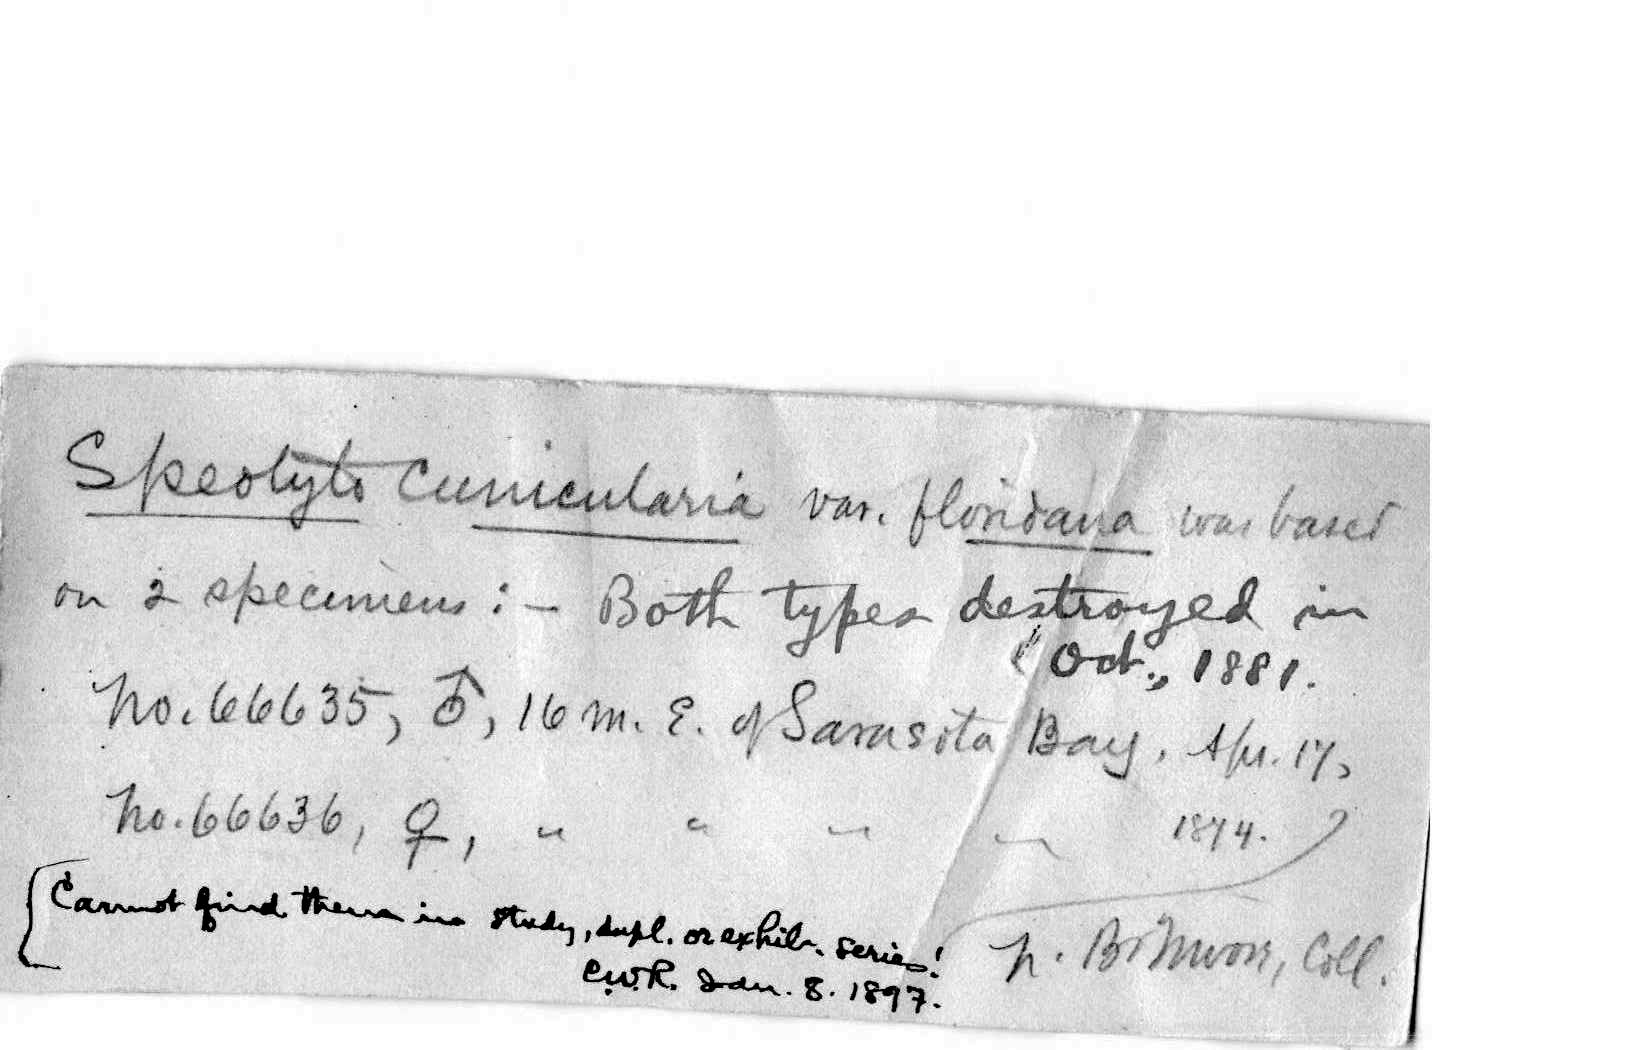 Speotyto Cunicularia var. floridana was based
on 2 specimens : - Both types destroyed in
Oct., 1881.
No. 66635, ♂, 16 m. E. of Sarasota Bay, Apr. 17,
No. 66636, ♀, " " " " 1874.
Cannot find them in study, dupl. or exhib. series!
C.W.R. Jan. 8. 1897.
N. B. Moore, Coll.